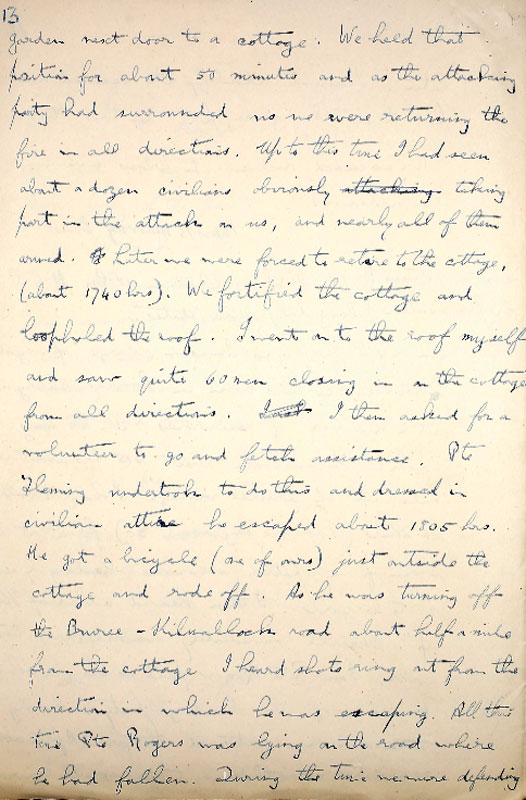 13
garden next door to a cottage. We held that
position for about 50 minutes and as the attacking
party had surrounded us we were returning the
fire in all directions. Up to this time I had seen
about a dozen civilians obviously attacking taking
part in the attack on us, and nearly all of them
armed. Later we were forced to retire to the cottage,
(about 1740 hrs). We fortified the cottage and
loopholed the roof. I went on to the roof myself
and saw quite 60 men closing in on the cottage
from all directions. I then asked for a
volunteer to go and fetch assistance. Pte
Fleming undertook to do this and dressed in
civilian attire he escaped about 1805 hrs.
He got a bicycle (one of ours) just outside the
cottage and rode off. As he was turning off
the Bruree - Kilmallock road about half a mile
from the cottage I heard shots ring out from the
direction in which he was escaping. All this
time Pte Rogers was lying on the road where
he had fallen. During the time we were defending